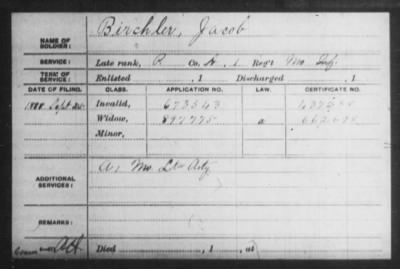 NAME OF SOLDIER: Birchler, Jacob
SERVICE: Late rank, P Co. A, 1 Reg't Mo Inf.
TERM OF SERVICE: Enlisted , 1 Discharged , 1
DATE OF FILING. CLASS. APPLICATION NO. LAW. CERTIFICATE NO.
1888 Sept 20 Invalid, 673543
Widow, 897775 a
Minor,
ADDITIONAL SERVICES: A, 1 Mo Lt Arty
REMARKS:
Died , 1 , at